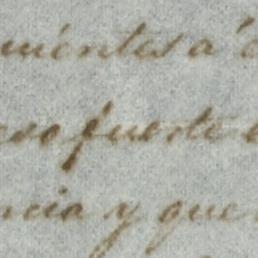 mientes á
eso fuerte
ncia y que